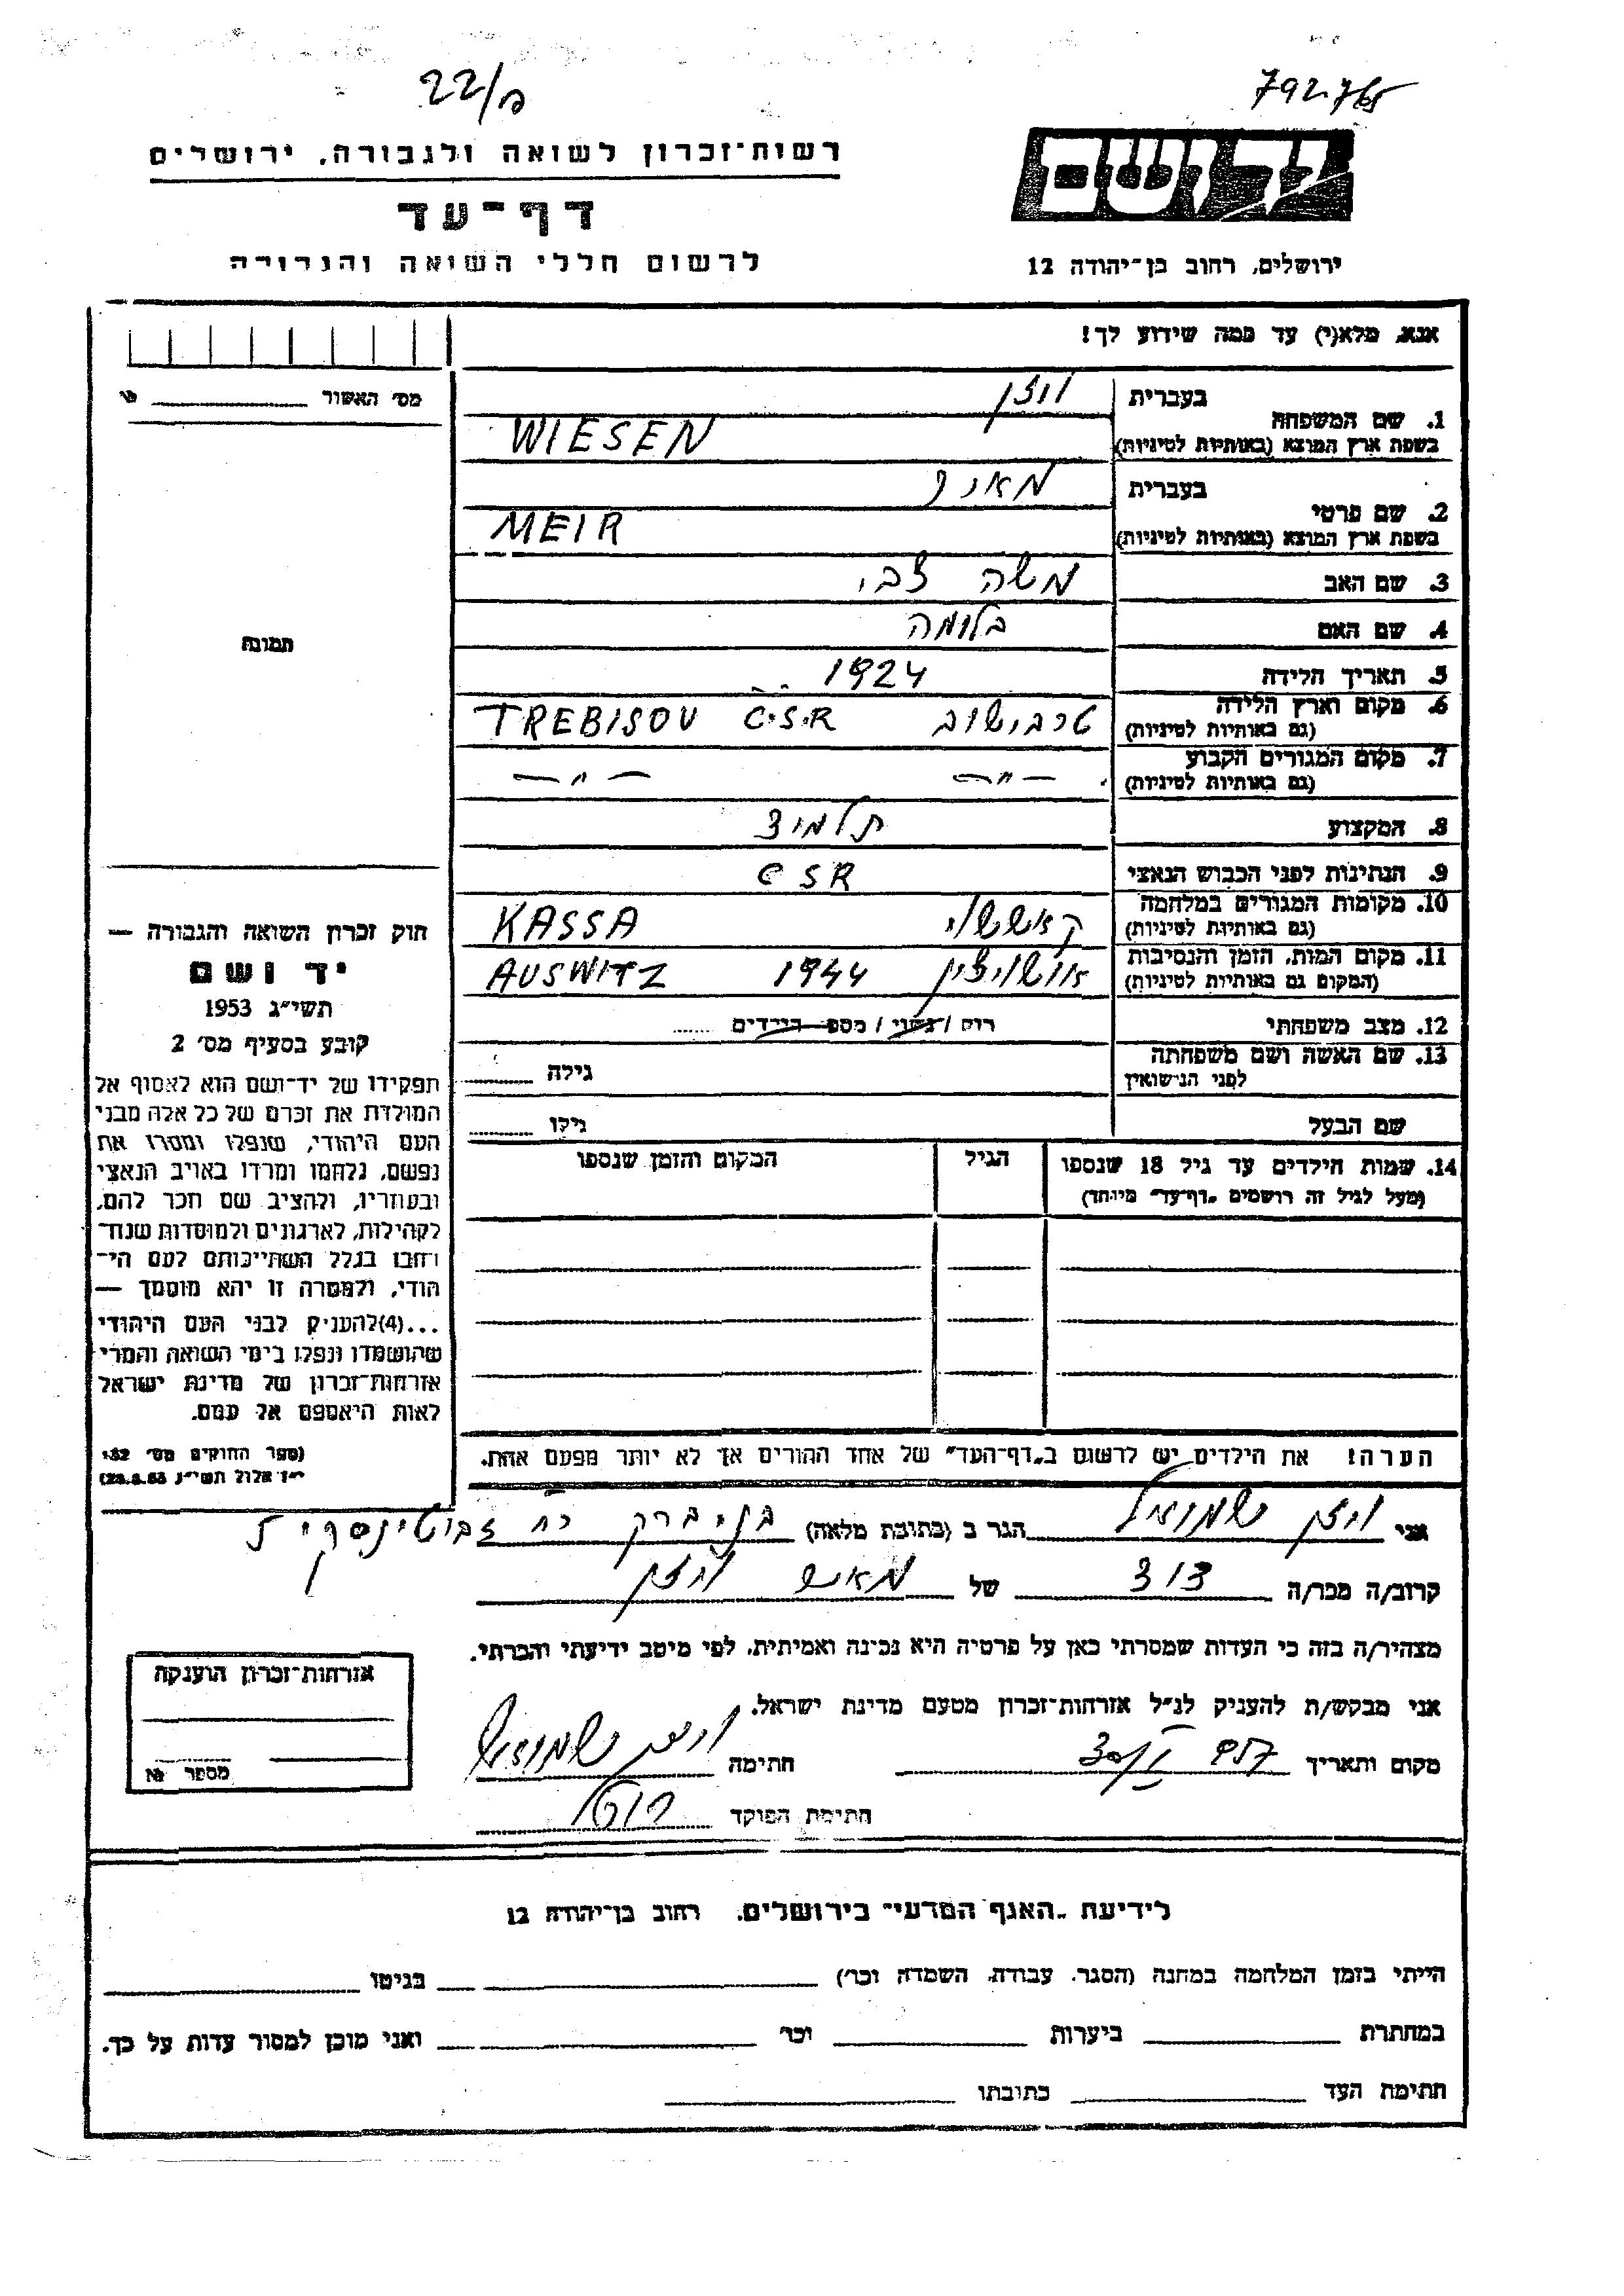 22/ם
792.765
יד ושם
רשות־זכרון לשואה ולגבורה, ירושלים
דף־עד
לרשום חללי השואה והגבורה
ירושלים, רחוב בן־יהודה 12
אנא, מלא(י) עד כמה שידוע לך!
מס׳ האשור
1. שם המשפחה בעברית ויזן
בשפת ארץ המוצא (באותיות לטיניות) WIESEN
2. שם פרטי בעברית מאיר
בשפת ארץ המוצא (באותיות לטיניות) MEIR
3. שם האב משה צבי
4. שם האם בלומה
5. תאריך הלידה 1924
6. מקום וארץ הלידה (גם באותיות לטיניות) טרבישוב TREBISOV C.S.R
7. מקום המגורים הקבוע (גם באותיות לטיניות) — " — — " —
8. המקצוע תלמיד
9. הנתינות לפני הכבוש הנאצי CSR
10. מקומות המגורים במלחמה (גם באותיות לטיניות) KASSA
11. מקום המות, הזמן והנסיבות (המקום גם באותיות לטיניות) אושויצין 1944 AUSWITZ
12. מצב משפחתי רווק / נשוי / מספר הילדים
13. שם האשה ושם משפחתה לפני הנישואין גילה
שם הבעל גילו
14. שמות הילדים עד גיל 18 שנספו הגיל המקום והזמן שנספו
(מעל לגיל זה רושמים „דף־עד" מיוחד)
הערה! את הילדים יש לרשום ב„דף־העד" של אחד ההורים אך לא יותר מפעם אחת.
תמונה
חוק זכרון השואה והגבורה —
יד ושם
תשי״ג 1953
קובע בסעיף מס׳ 2
תפקידו של יד־ושם הוא לאסוף אל
המולדת את זכרם של כל אלה מבני
העם היהודי, שנפלו ומסרו את
נפשם, נלחמו ומרדו באויב הנאצי
ובעוזריו, ולהציב שם וזכר להם,
לקהילות, לארגונים ולמוסדות שנח־
רחבו בגלל השתייכותם לעם הי־
הודי, ולמטרה זו יהא מוסמך —
...(4)להעניק לבני העם היהודי
שהושמדו ונפלו בימי השואה והמרי
אזרחות־זכרון של מדינת ישראל
לאות היאספם אל עמם.
(ספר החוקים מס׳ 132
י״ז אלול תשי״ג 28.8.53)
אני ויזן שמואל הגר ב (כתובת מלאה) בני ברק רח ז'בוטינסקי 5
קרוב/ה מכר/ה דוד של ויזן
מצהיר/ה בזה כי העדות שמסרתי כאן על פרטיה היא נכונה ואמיתית, לפי מיטב ידיעתי והכרתי.
אני מבקש/ת להעניק לנ״ל אזרחות־זכרון מטעם מדינת ישראל.
מקום ותאריך חתימה ויזן שמואל
חתימת הפוקד
אזרחות־זכרון הוענקה
מספר №
לידיעת „האגף המדעי" בירושלים, רחוב בן־יהודה 12
הייתי בזמן המלחמה במחנה (הסגר, עבודה, השמדה וכו׳) בגיטו
במחתרת ביערות וכו׳ ואני מוכן למסור עדות על כך.
חתימת העד כתובתו